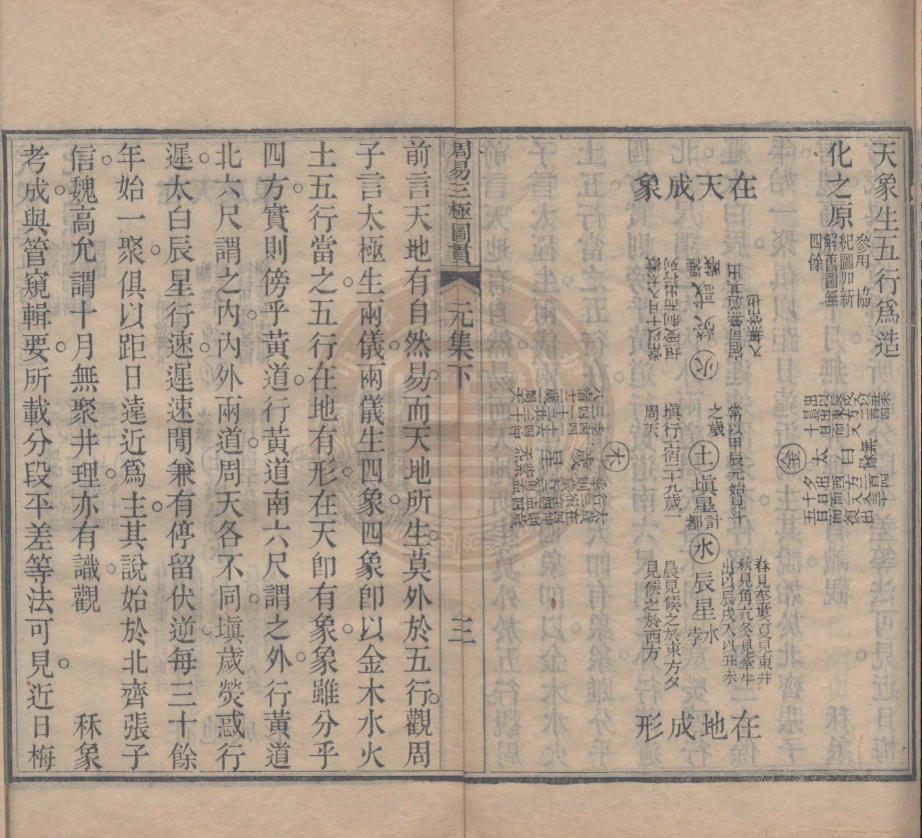 天象生五行爲造
化之原
參用協
紀圖加新
解舊圖無
四餘
在天成象
火
熒惑
土
塡星
常以甲辰元始建斗
之歲
塡行宿二十九歲一
周天
金
太白
木
歲星
水
辰星
水孛
春見奎婁夏見東井
秋見角亢冬見牽牛
出以辰戌入以丑未
晨見候之於東方夕
見候之於西方
在地成形
周易三極圖貫
元集下
三
前言天地有自然易而天地所生莫外於五行觀周
子言太極生兩儀兩儀生四象四象卽以金木水火
土五行當之五行在地有形在天卽有象象雖分乎
四方實則傍乎黃道行黃道南六尺謂之外行黃道
北六尺謂之內內外兩道周天各不同塡歲熒惑行
遲太白辰星行速遲速閒兼有停留伏逆每三十餘
年始一聚俱以距日遠近爲主其說始於北齊張子
信魏高允謂十月無聚井理亦有識觀 秝象
考成與管窺輯要所載分段平差等法可見近日梅